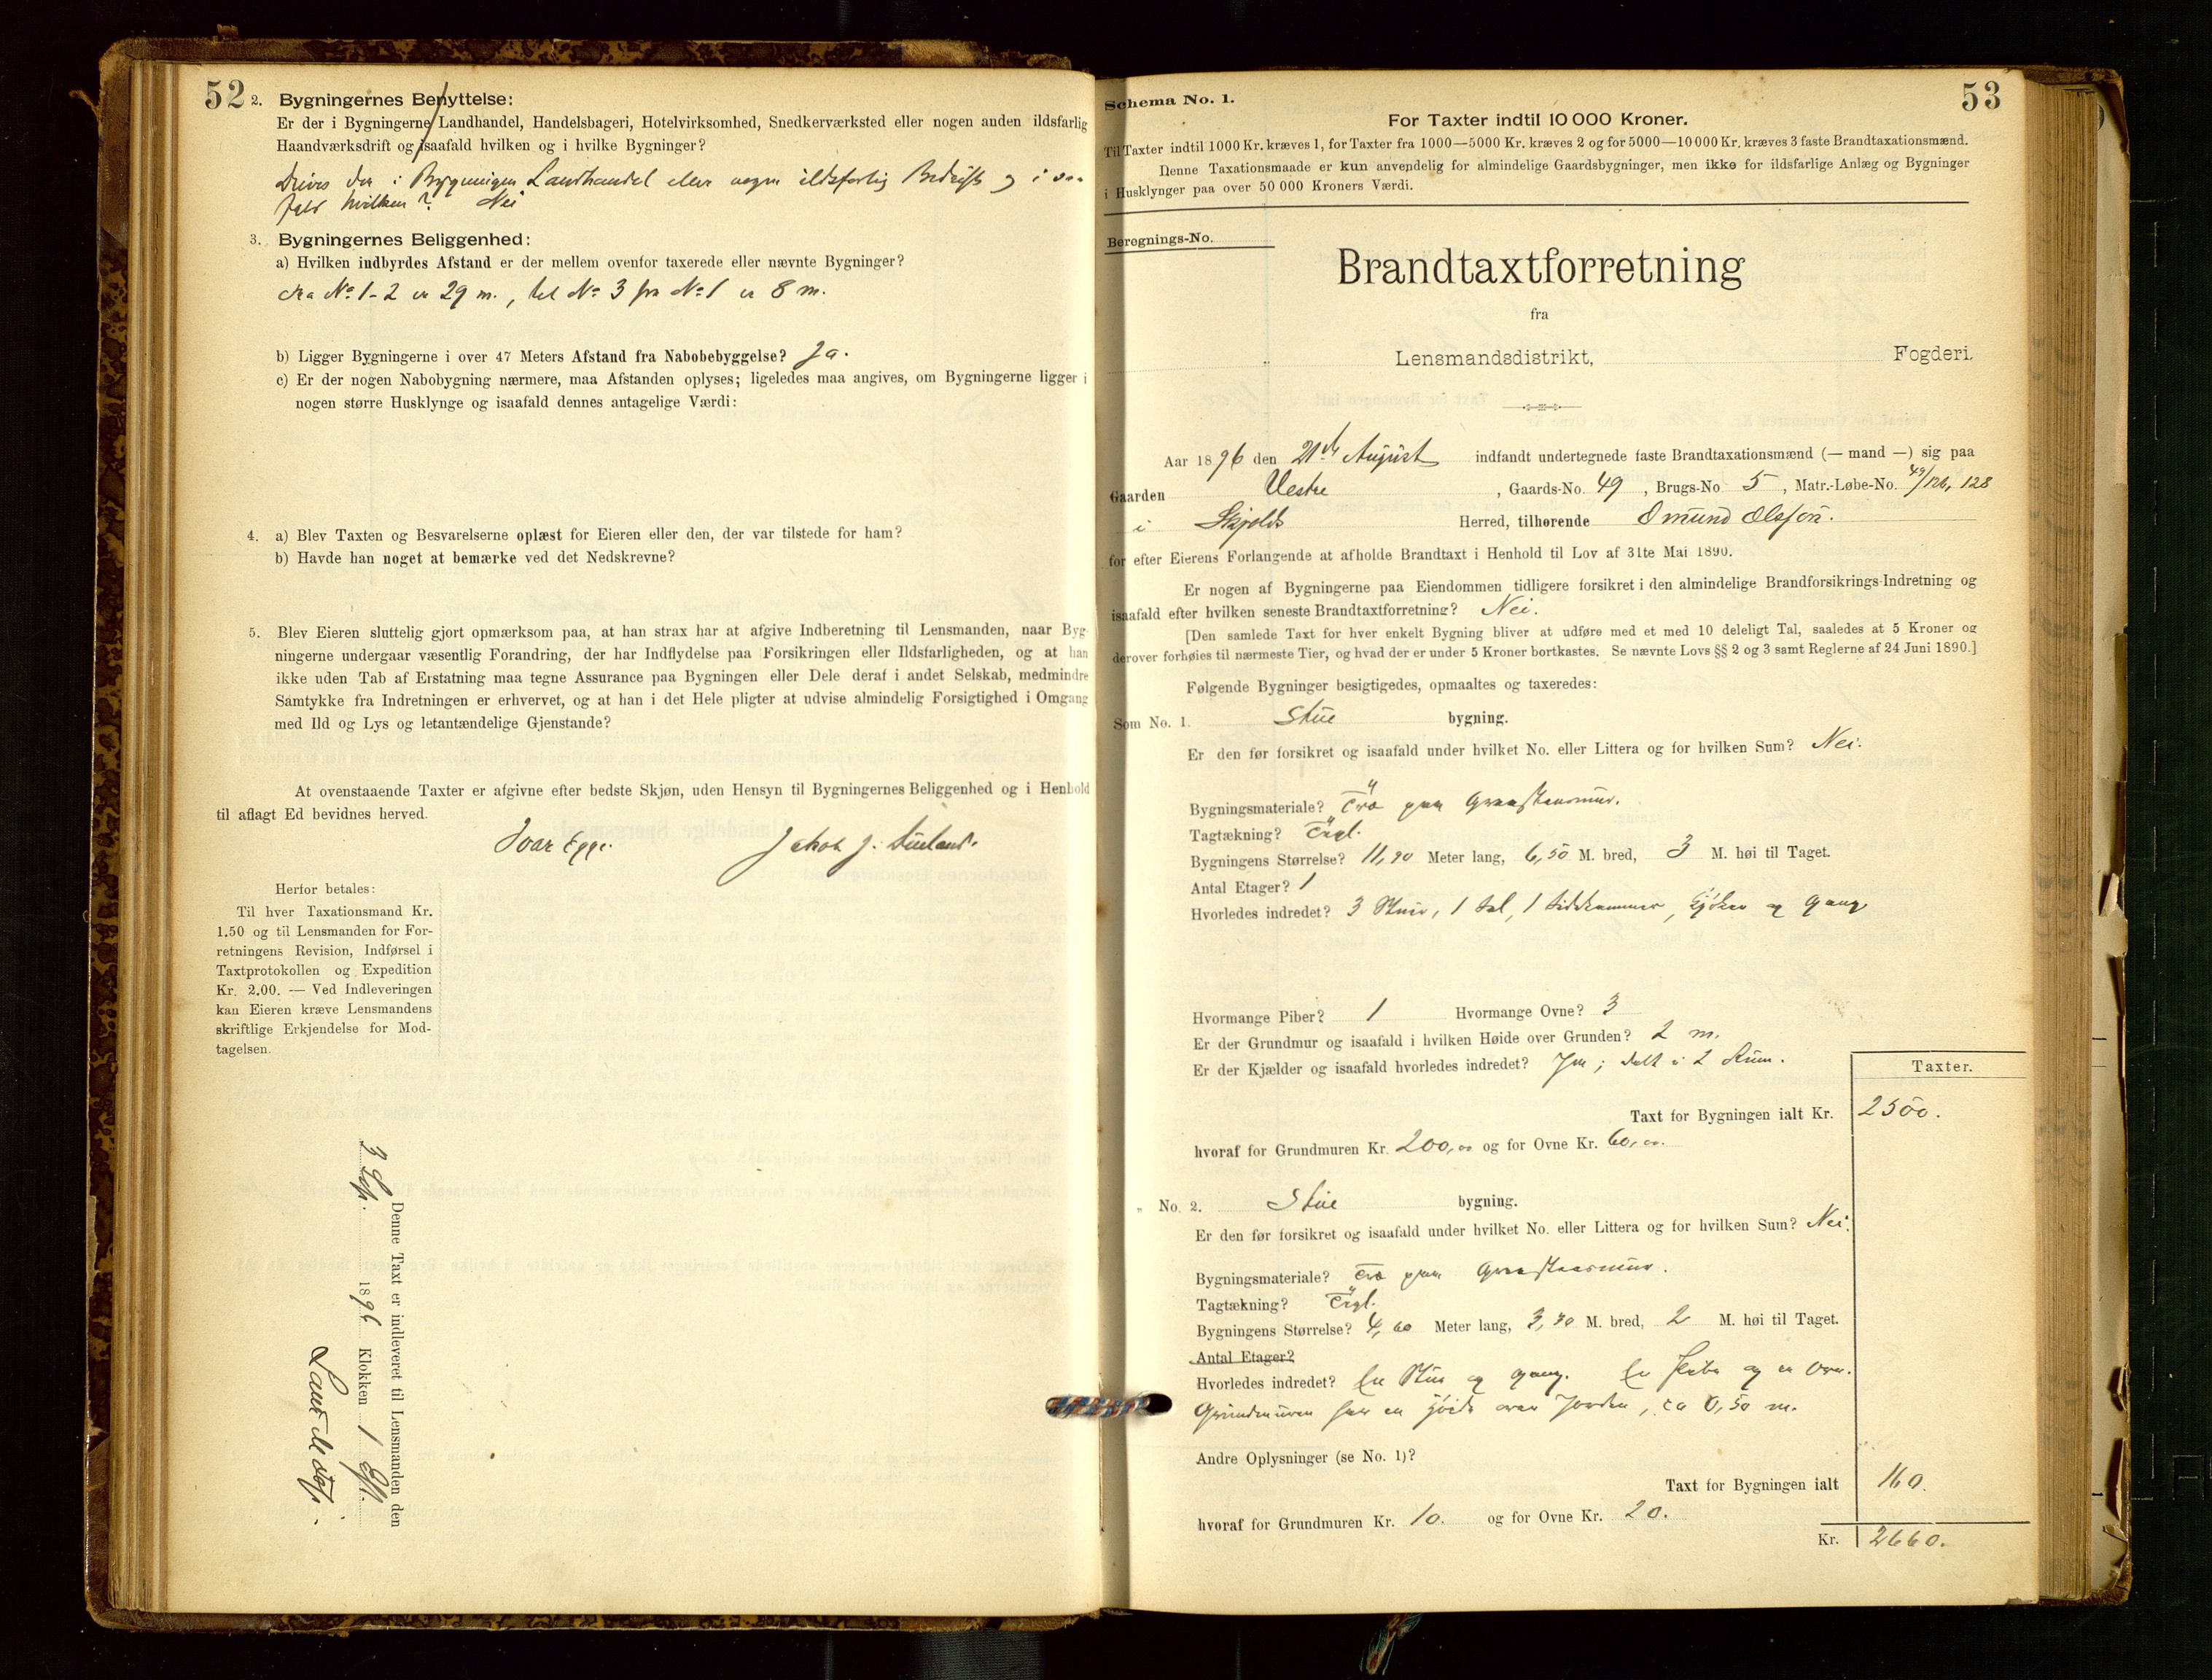 52
2. Bygningernes Benyttelse:
Er der i Bygningerne Landhandel, Handelsbageri, Hotelvirksomhed, Snedkerværksted eller nogen anden ildsfarlig
Haandværksdrift og isaafald hvilken og i hvilke Bygninger?
Drives der i Bygningen Landhandel eller nogen ildsfarlig Bedrift og i saa-
fald hvilken? Nei
3. Bygningernes Beliggenhed:
a) Hvilken indbyrdes Afstand er der mellem ovenfor taxerede eller nævnte Bygninger?
Fra No 1-2 er 29 m., til No 3 fra No 1 er 8 m.
b) Ligger Bygningerne i over 47 Meters Afstand fra Nabobebyggelse? Ja.
c) Er der nogen Nabobygning nærmere, maa Afstanden oplyses; ligeledes maa angives, om Bygningerne ligger i
nogen større Husklynge og isaafald dennes antagelige Værdi:
4. a) Blev Taxten og Besvarelserne oplæst for Eieren eller den, der var tilstede for ham?
b) Havde han noget at bemærke ved det Nedskrevne?
5. Blev Eieren sluttelig gjort opmærksom paa, at han strax har at afgive Indberetning til Lensmanden, naar Byg-
ningerne undergaar væsentlig Forandring, der har Indflydelse paa Forsikringen eller Ildsfarligheden, og at han
ikke uden Tab af Erstatning maa tegne Assurance paa Bygningen eller Dele deraf i andet Selskab, medmindre
Samtykke fra Indretningen er erhvervet, og at han i det Hele pligter at udvise almindelig Forsigtighed i Omgang
med Ild og Lys og letantændelige Gjenstande?
At ovenstaaende Taxter er afgivne efter bedste Skjøn, uden Hensyn til Bygningernes Beliggenhed og i Henhold
til aflagt Ed bevidnes herved.
Ivar Egge. Jakob J.
Herfor betales:
Til hver Taxationsmand Kr.
1.50 og til Lensmanden for For-
retningens Revision, Indførsel i
Taxtprotokollen og Expedition
Kr. 2.00. — Ved Indleveringen
kan Eieren kræve Lensmandens
skriftlige Erkjendelse for Mod-
tagelsen.
Denne Taxt er indleveret til Lensmanden den
3 Sep. 1896 Klokken 1 Eff.
53
Schema No. 1.
For Taxter indtil 10 000 Kroner.
Til Taxter indtil 1000 Kr. kræves 1, for Taxter fra 1000—5000 Kr. kræves 2 og for 5000—10000 Kr. kræves 3 faste Brandtaxationsmænd.
Denne Taxationsmaade er kun anvendelig for almindelige Gaardsbygninger, men ikke for ildsfarlige Anlæg og Bygninger
i Husklynger paa over 50 000 Kroners Værdi.
Beregnings-No.
Brandtaxtforretning
fra
Lensmandsdistrikt, Fogderi.
Aar 1896 den 21de August indfandt undertegnede faste Brandtaxationsmænd (— mand —) sig paa
Gaarden Vestre, Gaards-No. 49, Brugs-No 5, Matr.-Løbe-No. 49/126, 128
i Skjolds Herred, tilhørende Omund Olsson.
for efter Eierens Forlangende at afholde Brandtaxt i Henhold til Lov af 31te Mai 1890.
Er nogen af Bygningerne paa Eiendommen tidligere forsikret i den almindelige Brandforsikrings-Indretning og
isaafald efter hvilken seneste Brandtaxtforretning? Nei.
[Den samlede Taxt for hver enkelt Bygning bliver at udføre med et med 10 deleligt Tal, saaledes at 5 Kroner og
derover forhøies til nærmeste Tier, og hvad der er under 5 Kroner bortkastes. Se nævnte Lovs §§ 2 og 3 samt Reglerne af 24 Juni 1890.]
Følgende Bygninger besigtigedes, opmaaltes og taxeredes:
Som No. 1. Stue bygning.
Er den før forsikret og isaafald under hvilket No. eller Littera og for hvilken Sum? Nei.
Bygningsmateriale? Træ paa Graastensmur.
Tagtækning? Tegl.
Bygningens Størrelse? 11,90 Meter lang, 6,50 M. bred, 3 M. høi til Taget.
Antal Etager? 1
Hvorledes indredet? 3 Stuer, 1 Sal, 1 Sidekammer, Kjøken og Gang
Hvormange Piber? 1 Hvormange Ovne? 3
Er der Grundmur og isaafald i hvilken Høide over Grunden? 2 m.
Er der Kjælder og isaafald hvorledes indredet? Ja; delt i 2 Rum.
Taxter.
Taxt for Bygningen ialt Kr. 2500.
hvoraf for Grundmuren Kr. 200,00 og for Ovne Kr. 60,00.
„ No. 2. Stue bygning.
Er den før forsikret og isaafald under hvilket No. eller Littera og for hvilken Sum? Nei.
Bygningsmateriale? Træ paa Graastensmur.
Tagtækning? Tegl.
Bygningens Størrelse? 4,60 Meter lang, 3,70 M. bred, 2 M. høi til Taget.
Antal Etager?
Hvorledes indredet? En Stue og Gang. En Pibe og en Ovn.
Grundmuren har en Høide over Jorden, ca 0,50 m.
Andre Oplysninger (se No. 1)?
Taxt for Bygningen ialt 160.
hvoraf for Grundmuren Kr. 10. og for Ovne Kr. 20.
Kr. 2660.